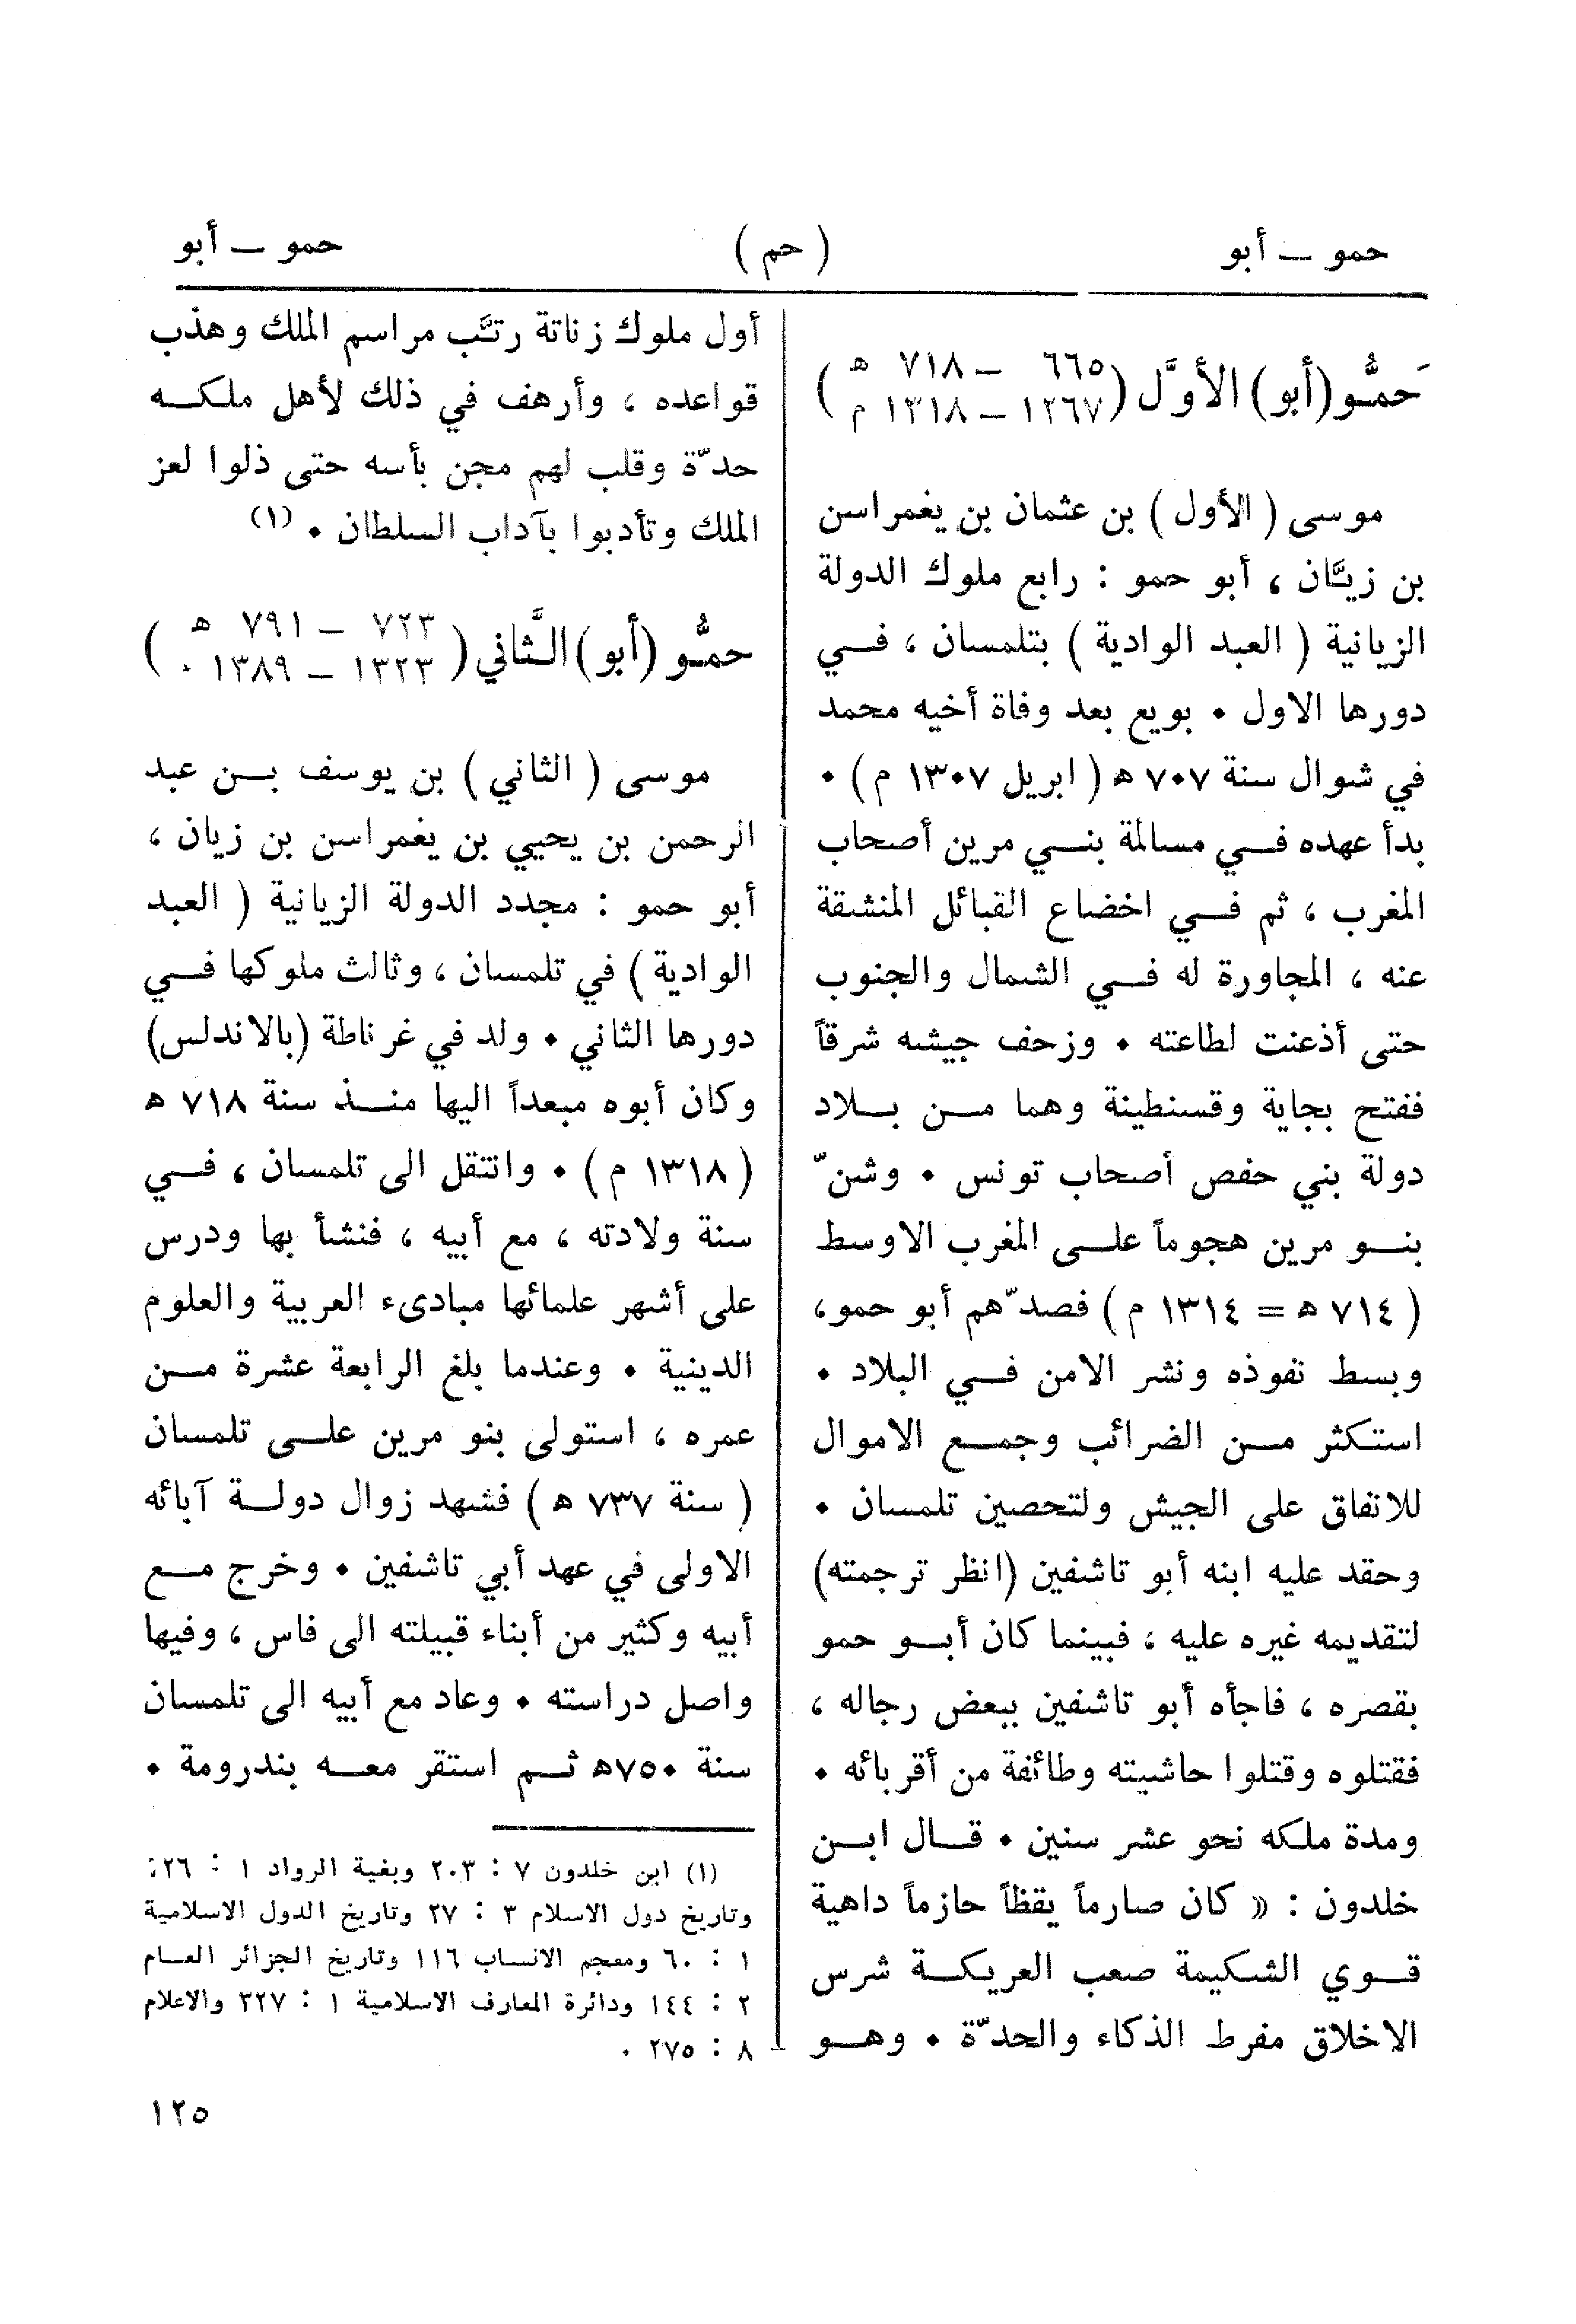 حمو ــ أبو
( حم )
حمو ــ أبو
حَمُّو (أبو) الأوَّل ( ٦٦٥ – ٧١٨ هـ
١٢٦٧ – ١٣١٨ م )
موسى ( الأول ) بن عثمان بن يغمراسن
بن زيَّان ، أبو حمو : رابع ملوك الدولة
الزيانية ( العبد الوادية ) بتلمسان ، فــي
دورها الاول ٠ بويع بعد وفاة أخيه محمد
في شوال سنة ٧٠٧ هـ ( ابريل ١٣٠٧ م ) ٠
بدأ عهده فــي مسالمة بنــي مرين أصحاب
المغرب ، ثم فــي اخضاع القبائل المنشقة
عنه ، المجاورة له فــي الشمال والجنوب
حتى أذعنت لطاعته ٠ وزحف جيشه شرقاً
ففتح بجاية وقسنطينة وهما مــن بــلاد
دولة بني حفص أصحاب تونس ٠ وشنّ
بنــو مرين هجوماً علــى المغرب الاوسط
( ٧١٤ هـ = ١٣١٤ م ) فصدّهم أبو حمو،
وبسط نفوذه ونشر الامن فــي البلاد ٠
استكثر مــن الضرائب وجمــع الاموال
للانفاق على الجيش ولتحصين تلمسان ٠
وحقد عليه ابنه أبو تاشفين (انظر ترجمته)
لتقديمه غيره عليه ، فبينما كان أبــو حمو
بقصره ، فاجأه أبو تاشفين ببعض رجاله ،
فقتلوه وقتلوا حاشيته وطائفة من أقربائه ٠
ومدة ملكه نحو عشر سنين ٠ قــال ابــن
خلدون : « كان صارماً يقظاً حازماً داهية
قــوي الشكيمة صعب العريكــة شرس
الاخلاق مفرط الذكاء والحدّة ٠ وهــو
أول ملوك زناتة رتَّب مراسم الملك وهذب
قواعده ، وأرهف في ذلك لأهل ملكــه
حدّة وقلب لهم مجن بأسه حتى ذلوا لعز
الملك وتأدبوا بآداب السلطان ٠ (١)
حمُّو (أبو) الثَّاني ( ٧٢٣ – ٧٩١ هـ
١٣٢٣ – ١٣٨٩ ٠ )
موسى ( الثاني ) بن يوسف بــن عبد
الرحمن بن يحيي بن يغمراسن بن زيان ،
أبو حمو : مجدد الدولة الزيانية ( العبد
الوادية ) في تلمسان ، وثالث ملوكها فــي
دورها الثاني ٠ ولد في غرناطة (بالاندلس)
وكان أبوه مبعداً اليها منــذ سنة ٧١٨ هـ
( ١٣١٨ م ) ٠ وانتقل الى تلمسان ، فــي
سنة ولادته ، مع أبيه ، فنشأ بها ودرس
على أشهر علمائها مبادىء العربية والعلوم
الدينية ٠ وعندما بلغ الرابعة عشرة مــن
عمره ، استولى بنو مرين علــى تلمسان
( سنة ٧٣٧ هـ ) فشهد زوال دولــة آبائه
الاولى في عهد أبي تاشفين ٠ وخرج مــع
أبيه وكثير من أبناء قبيلته الى فاس ، وفيها
واصل دراسته ٠ وعاد مع أبيه الى تلمسان
سنة ٧٥٠هـ ثــم استقر معــه بندرومة ٠
(١) ابن خلدون ٧ : ٢٠٣ وبغية الرواد ١ : ٢٦:
وتاريخ دول الاسلام ٣ : ٢٧ وتاريخ الدول الاسلامية
١ : ٦٠ ومعجم الانساب ١١٦ وتاريخ الجزائر العــام
٢ : ١٤٤ ودائرة المعارف الاسلامية ١ : ٣٢٧ والاعلام
٨ : ٢٧٥ ٠
١٢٥